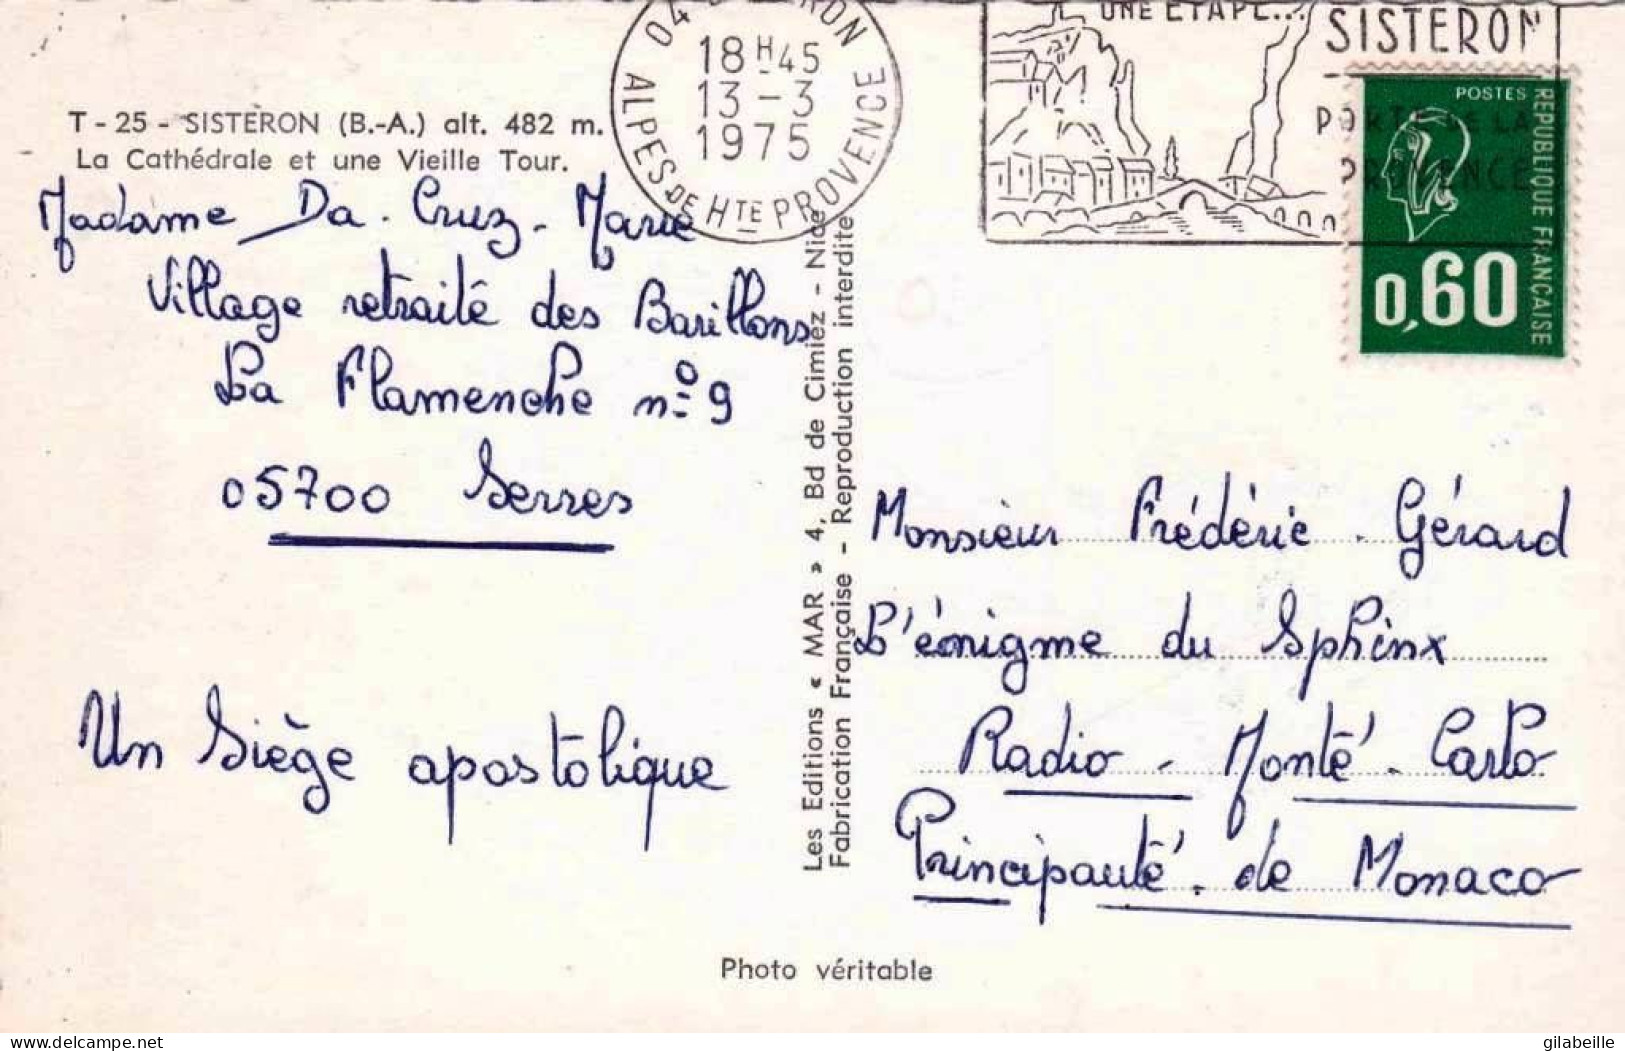 18H45
13-3
1975
ALPES DE HTE PROVENCE
UNE ETAPE...
SISTERON
POSTES
REPUBLIQUE FRANÇAISE
0,60
T - 25 - SISTERON (B.-A.) alt. 482 m.
La Cathédrale et une Vieille Tour.
Madame Da. Cruz. Marie
Village retraité des Barillons
La Flamenche n° 9
05700 Serres
Un Siège apostolique
Les Editions « MAR » 4, Bd de Cimiez - Nice
Fabrication Française - Reproduction interdite
Monsieur Frédéric. Gérard
L'énigme du Sphinx
Radio - Monté. Carlo
Principauté. de Monaco
Photo véritable
delcampe.net
gilabeille